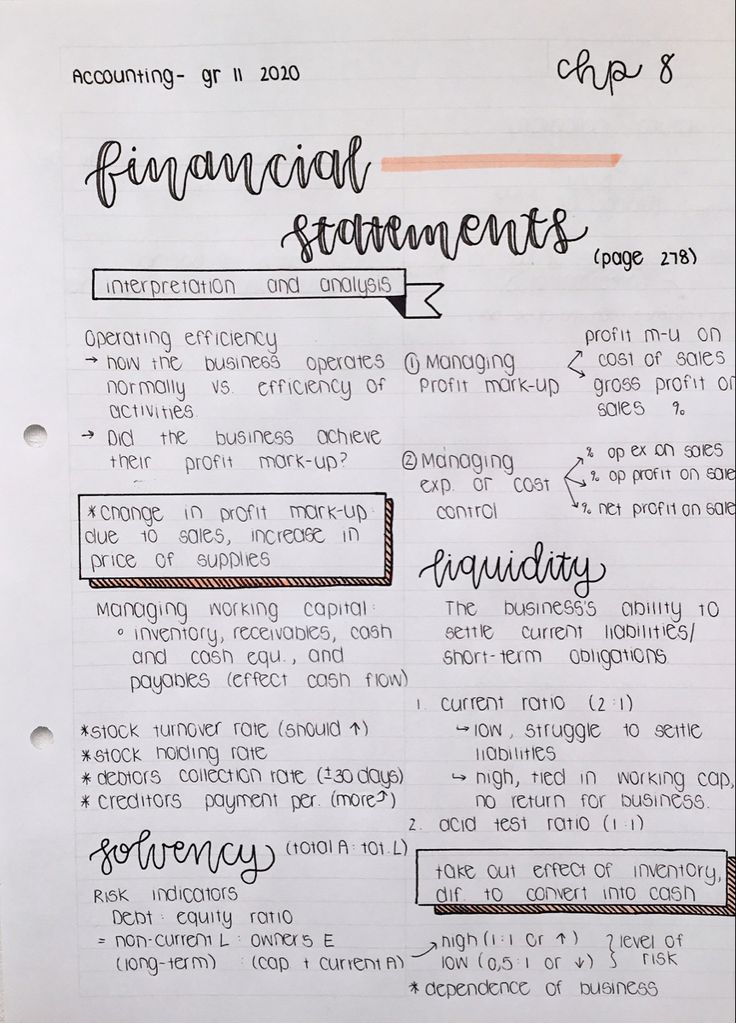 Accounting - gr 11 2020
chp 8
financial
statements
(page 278)
interpretation and analysis
Operating efficiency
→ how the business operates
normally vs. efficiency of
activities
→ Did the business achieve
their profit mark-up?
*change in profit mark-up
due to sales, increase in
price of supplies
Managing working capital:
° inventory, receivables, cash
and cash equ., and
payables (effect cash flow)
*stock turnover rate (should ↑)
*stock holding rate
*debtors collection rate (±30 days)
* creditors payment per. (more↑)
solvency (total A : tot. L)
Risk indicators
Debt : equity ratio
= non-current L : owners E
(long-term) : (cap + current A)
① Managing
profit mark-up
profit m-u on
cost of sales
gross profit on
sales %
② Managing
exp. or cost
control
% op ex on sales
% op profit on sale
% net profit on sale
liquidity
The business's ability to
settle current liabilities/
short-term obligations
1. current ratio (2:1)
↳ low, struggle to settle
liabilities
↳ high, tied in working cap,
no return for business.
2. acid test ratio (1:1)
take out effect of inventory,
dif. to convert into cash
high (1:1 or ↑)
low (0,5:1 or ↓)
level of
risk
* dependence of business